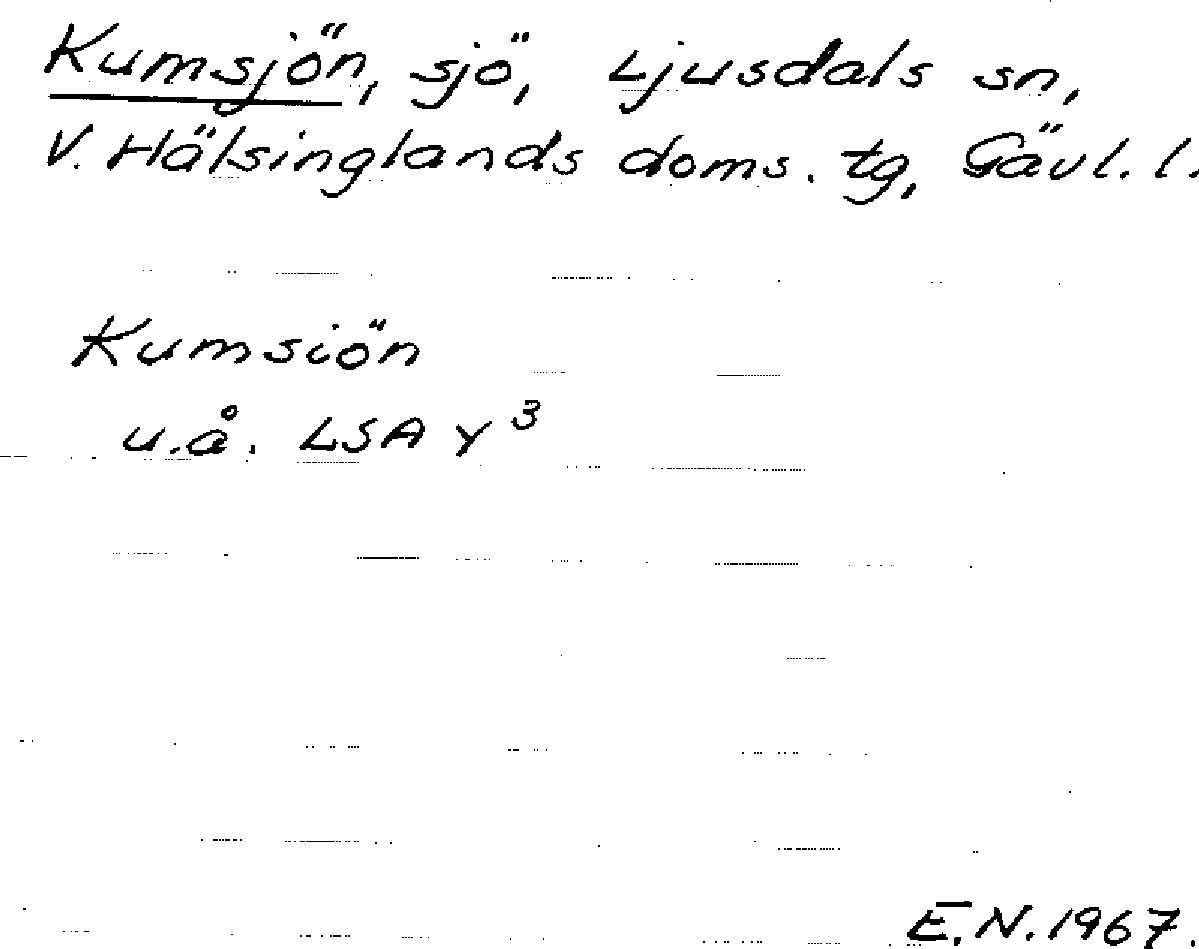 Kumsjön, sjö, Ljusdals sn,
V. Hälsinglands doms. tg, Gävl. l.
Kumsiön
u.å. LSA Y 3
E.N. 1967.